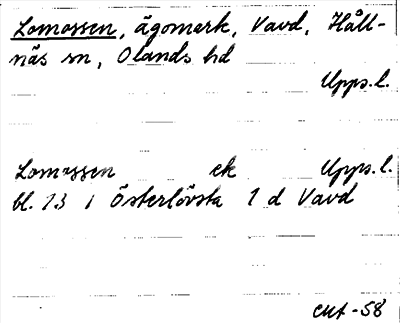 Lomossen, ägomark, Vavd, Håll-
näs sn, Olands hd
Upps.l.
Lomossen ek Upps.l.
bl. 13 i Österlövsta 1 d Vavd
-58